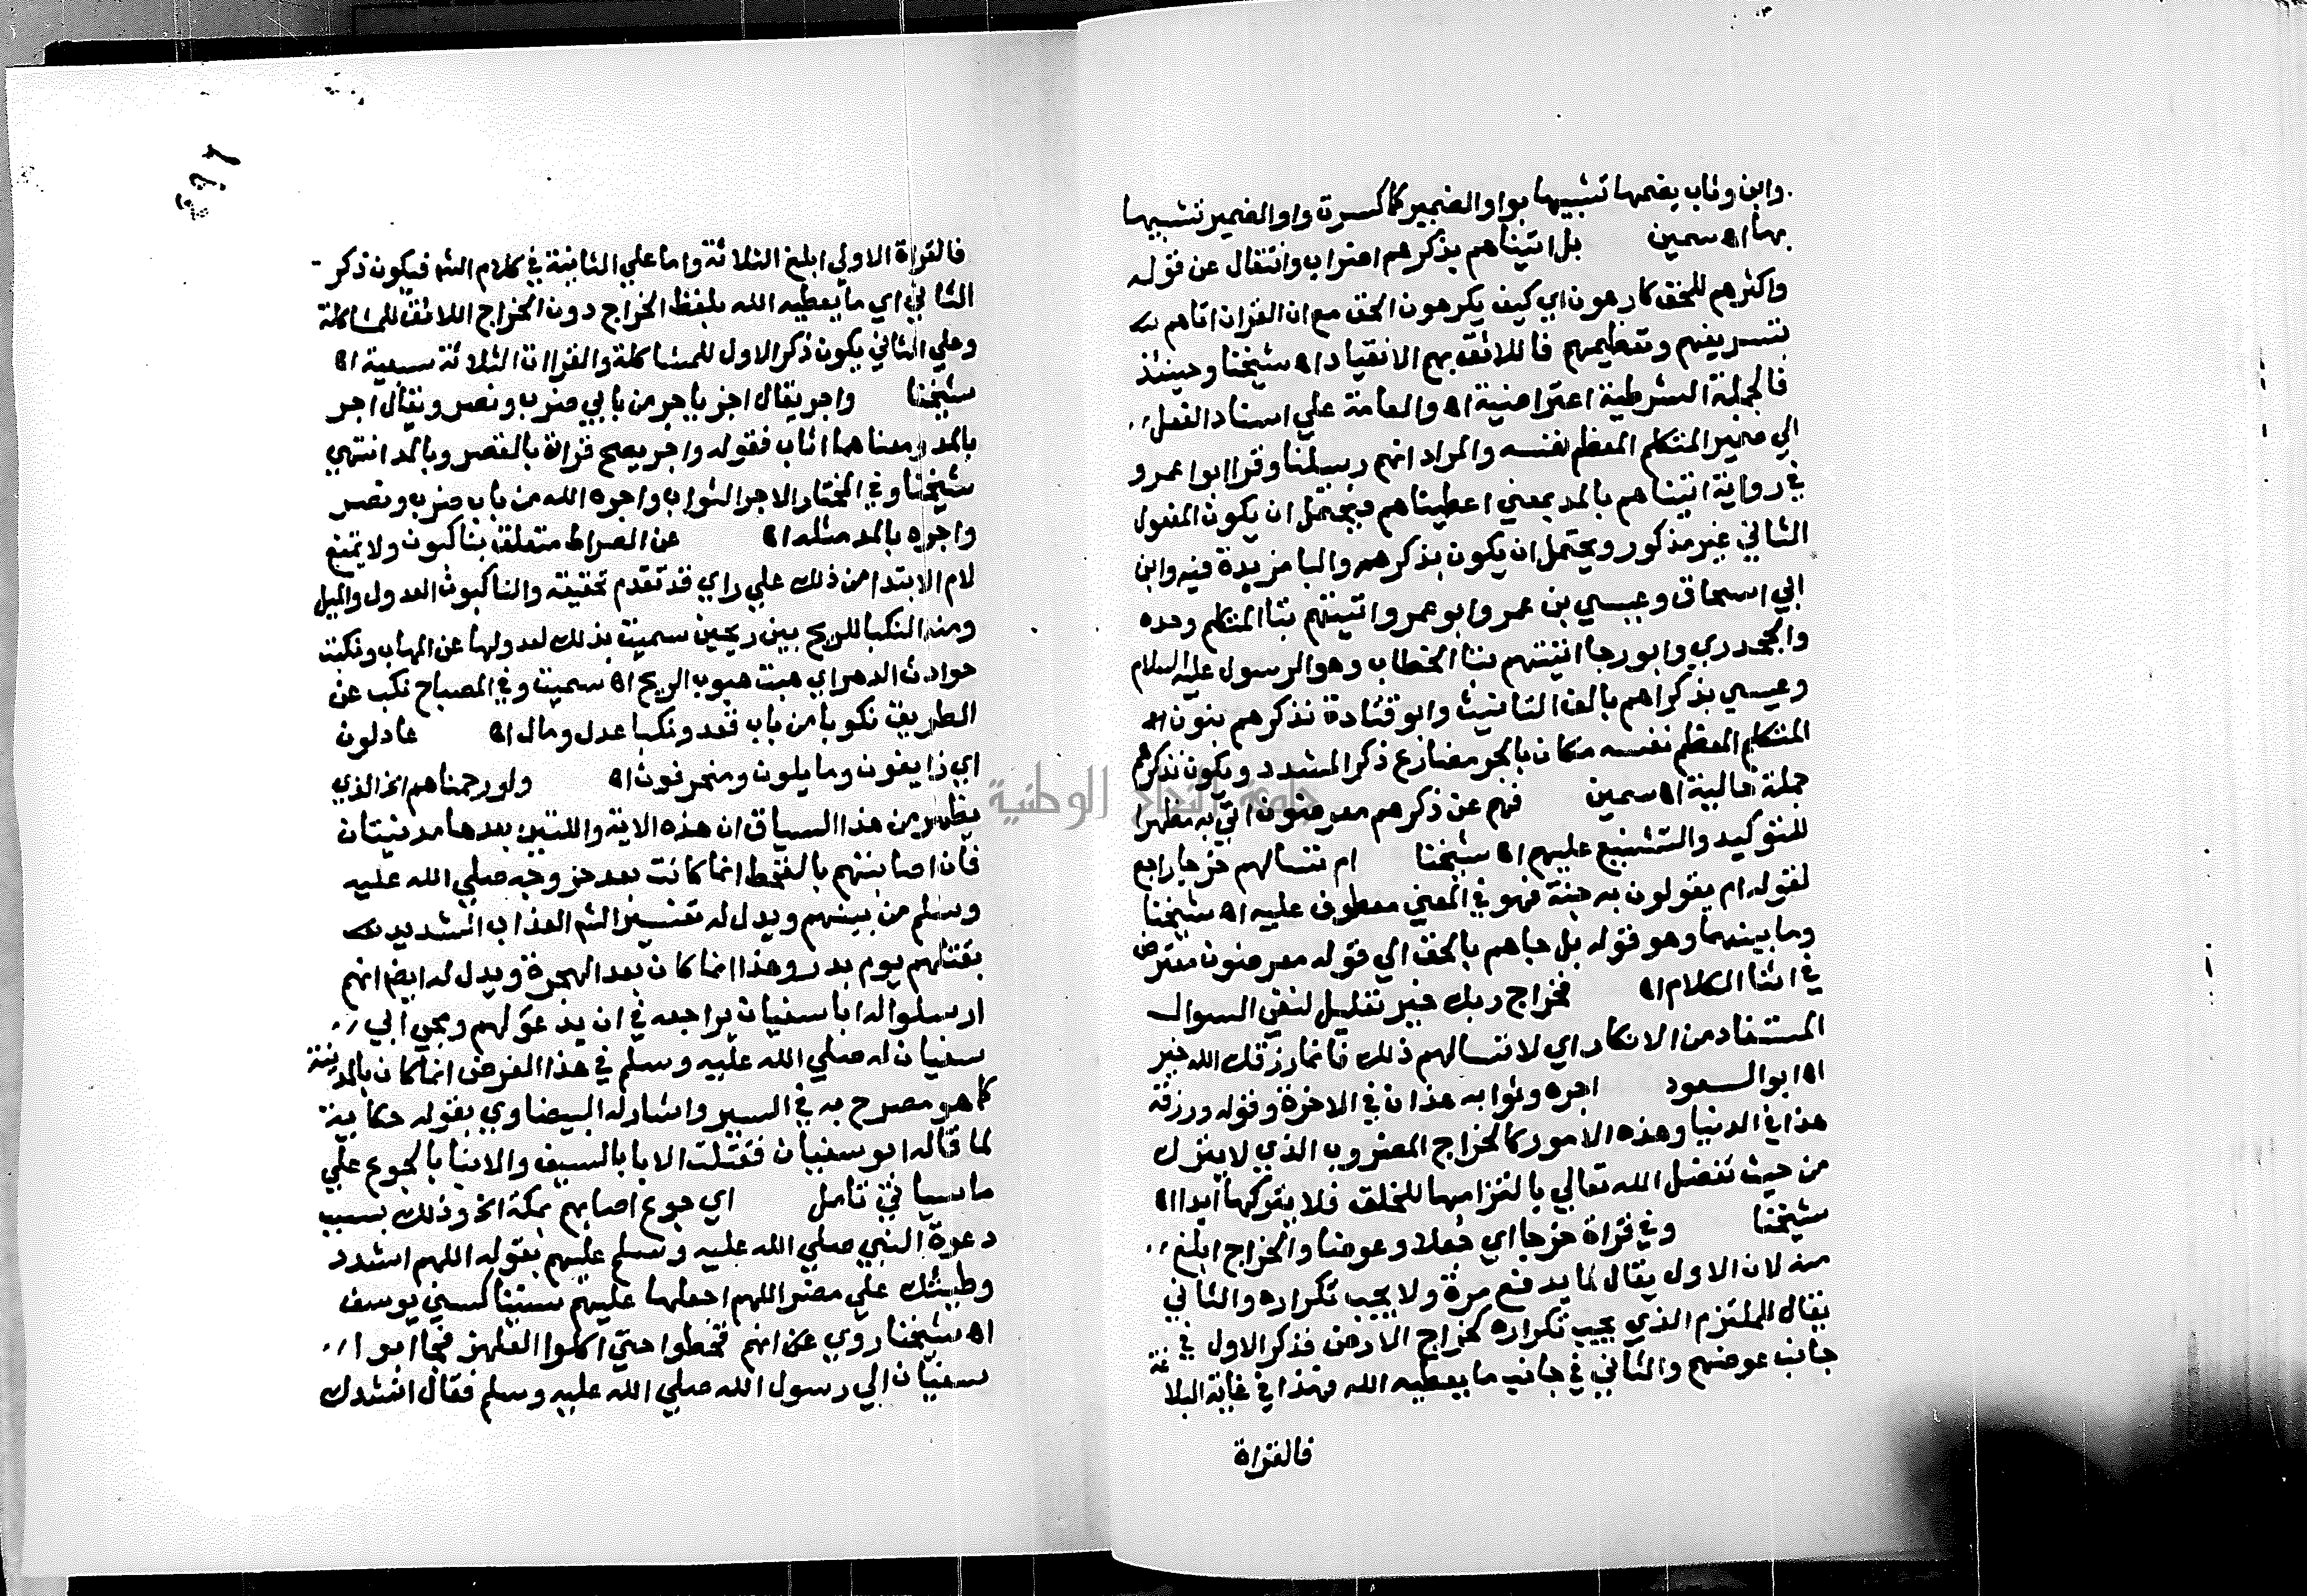 وابن وثاب يضمها تشبيها بواو الضمير كما كسرت واو الضمير تشبيها
بها اه سمين بل اتيناهم بذكرهم اضراب وانتقال عن قوله
واكثرهم للحق كارهون اي كيف يكرهون الحق مع ان القران اتاهم
بتشريفهم وتعظيمهم فاللائق بهم الانقياد اه شيخنا وحينئذ
فالجملة الشرطية اعتراضية اه والعامة علي اسناد الفعل
الي ضمير المتكلم المعظم نفسه والمراد اتتهم رسلنا وقرا ابوا عمرو
في رواية اتيناهم بالمد بمعني اعطيناهم فيحتمل ان يكون المفعول
الثاني غير مذكور ويحتمل ان يكون بذكرهم والبا مزيدة فيه وابن
ابي اسحاق وعيسي بن عمر وابو عمرو اتيتهم بتا المتكلم وحده
والجحدري وابو رجا اتيتهم بتا الخطاب وهو الرسول عليه السلام
وعيسي بذكراهم بالف التانيث وابو قتادة نذكرهم بنون
المتكلم المعظم نفسه مكان بالجر مضارع ذكر المشدد ويكون نذكرهم
جملة حالية اه سمين فهم عن ذكرهم معرضون اتي به مظهرا
للتوكيد والتشنيع عليهم اه شيخنا ام تسالهم خرجا راجع
لقوله ام يقولون به جنة فهو في المعني معطوف عليه اه شيخنا
وما بينهما وهو قوله بل جاهم بالحق الي قوله معرضون معترض
في اثنا الكلام اه فخراج ربك خير تعليل لنفي السوال
المستفاد من الانكار اي لا تسالهم ذلك فانما رزقك الله خير
اه ابو السعود اجره وثوابه هذان في الاخرة وقوله ورزقه
هذا في الدنيا وهذه الامور كالخراج المضروب الذي لا يترك
من حيث تفضل الله تعالي بالتزامها للخلق فلا يتركها ابدا اه
شيخنا وفي قراة خرجا اي جعلا وعوضا والخراج ابلغ
منه لان الاول يقال لما يدفع مرة ولا يجب تكراره والثاني
يقال للملتزم الذي يجب تكراره كخراج الارض فذكر الاول في
جانب عوضهم والثاني في جانب ما يعطيه الله فهذا في غاية البلاغة
فالقراة
فالقراة الاولي ابلغ الثلاثة واما علي الثانية في كلام الش فيكون ذكر
الثاني اي ما يعطيه الله بلفظ الخراج دون الخراج اللائق للمشاكلة
وعلي الثاني يكون ذكر الاول للمشاكلة والقراات الثلاثة سبعية اه
شيخنا واجر يقال اجر ياجر من بابي ضرب ونصر ويقال اجر
بالمد ومعناهما اثاب فقوله واجر يصح قراة بالقصر وبالمد انتهي
شيخنا وفي المختار الاجر الثواب واجره الله من باب ضرب ونصر
واجره بالمد مثله اه عن الصراط متعلق بناكبون ولا تمنع
لام الابتدا من ذلك علي راي قد تقدم تحقيقه والناكبون العدول والميل
ومنه النكبا للريح بين ريحين سميت بذلك لعدولها عن المهاب ونكبت
حوادث الدهر اي هبت هبوب الريح اه سمين وفي المصباح نكب عن
الطريق نكوبا من باب قعد ونكبا عدل ومال اه عادلون
اي زايغون ومايلون ومنحرفون اه ولو رحمناهم الخ الذي
يظهر من هذا السياق ان هذه الاية واللتين بعدها مدنيتان
فان اصابتهم بالقحط انما كانت بعد خروجه صلي الله عليه
وسلم من بينهم ويدل له تفسير الش العذاب الشديد
بقتلهم يوم بدر وهذا انما كان بعد الهجرة ويدل له ايضا انهم
ارسلوا له ابا سفيان يراجعه في ان يدعو لهم ومجي ابي
سفيان له صلي الله عليه وسلم في هذا الغرض انما كان بالمدينة
كما هو مصرح به في السير واشار له البيضاوي بقوله حكاية
لما قاله ابو سفيان فقتلت الابا بالسيف والابنا بالجوع علي
ما سياتي تامل اي جوع اصابهم بمكة الخ وذلك بسبب
دعوة النبي صلي الله عليه وسلم عليهم بقوله اللهم اشدد
وطئتك علي مضر اللهم اجعلها عليهم سنينا كسني يوسف
اه شيخنا روي عن انهم قحطوا حتي اكلوا العلهز فجا ابوا
سفيان الي رسول الله صلي الله عليه وسلم فقال انشدك
جامعة النجاح الوطنية